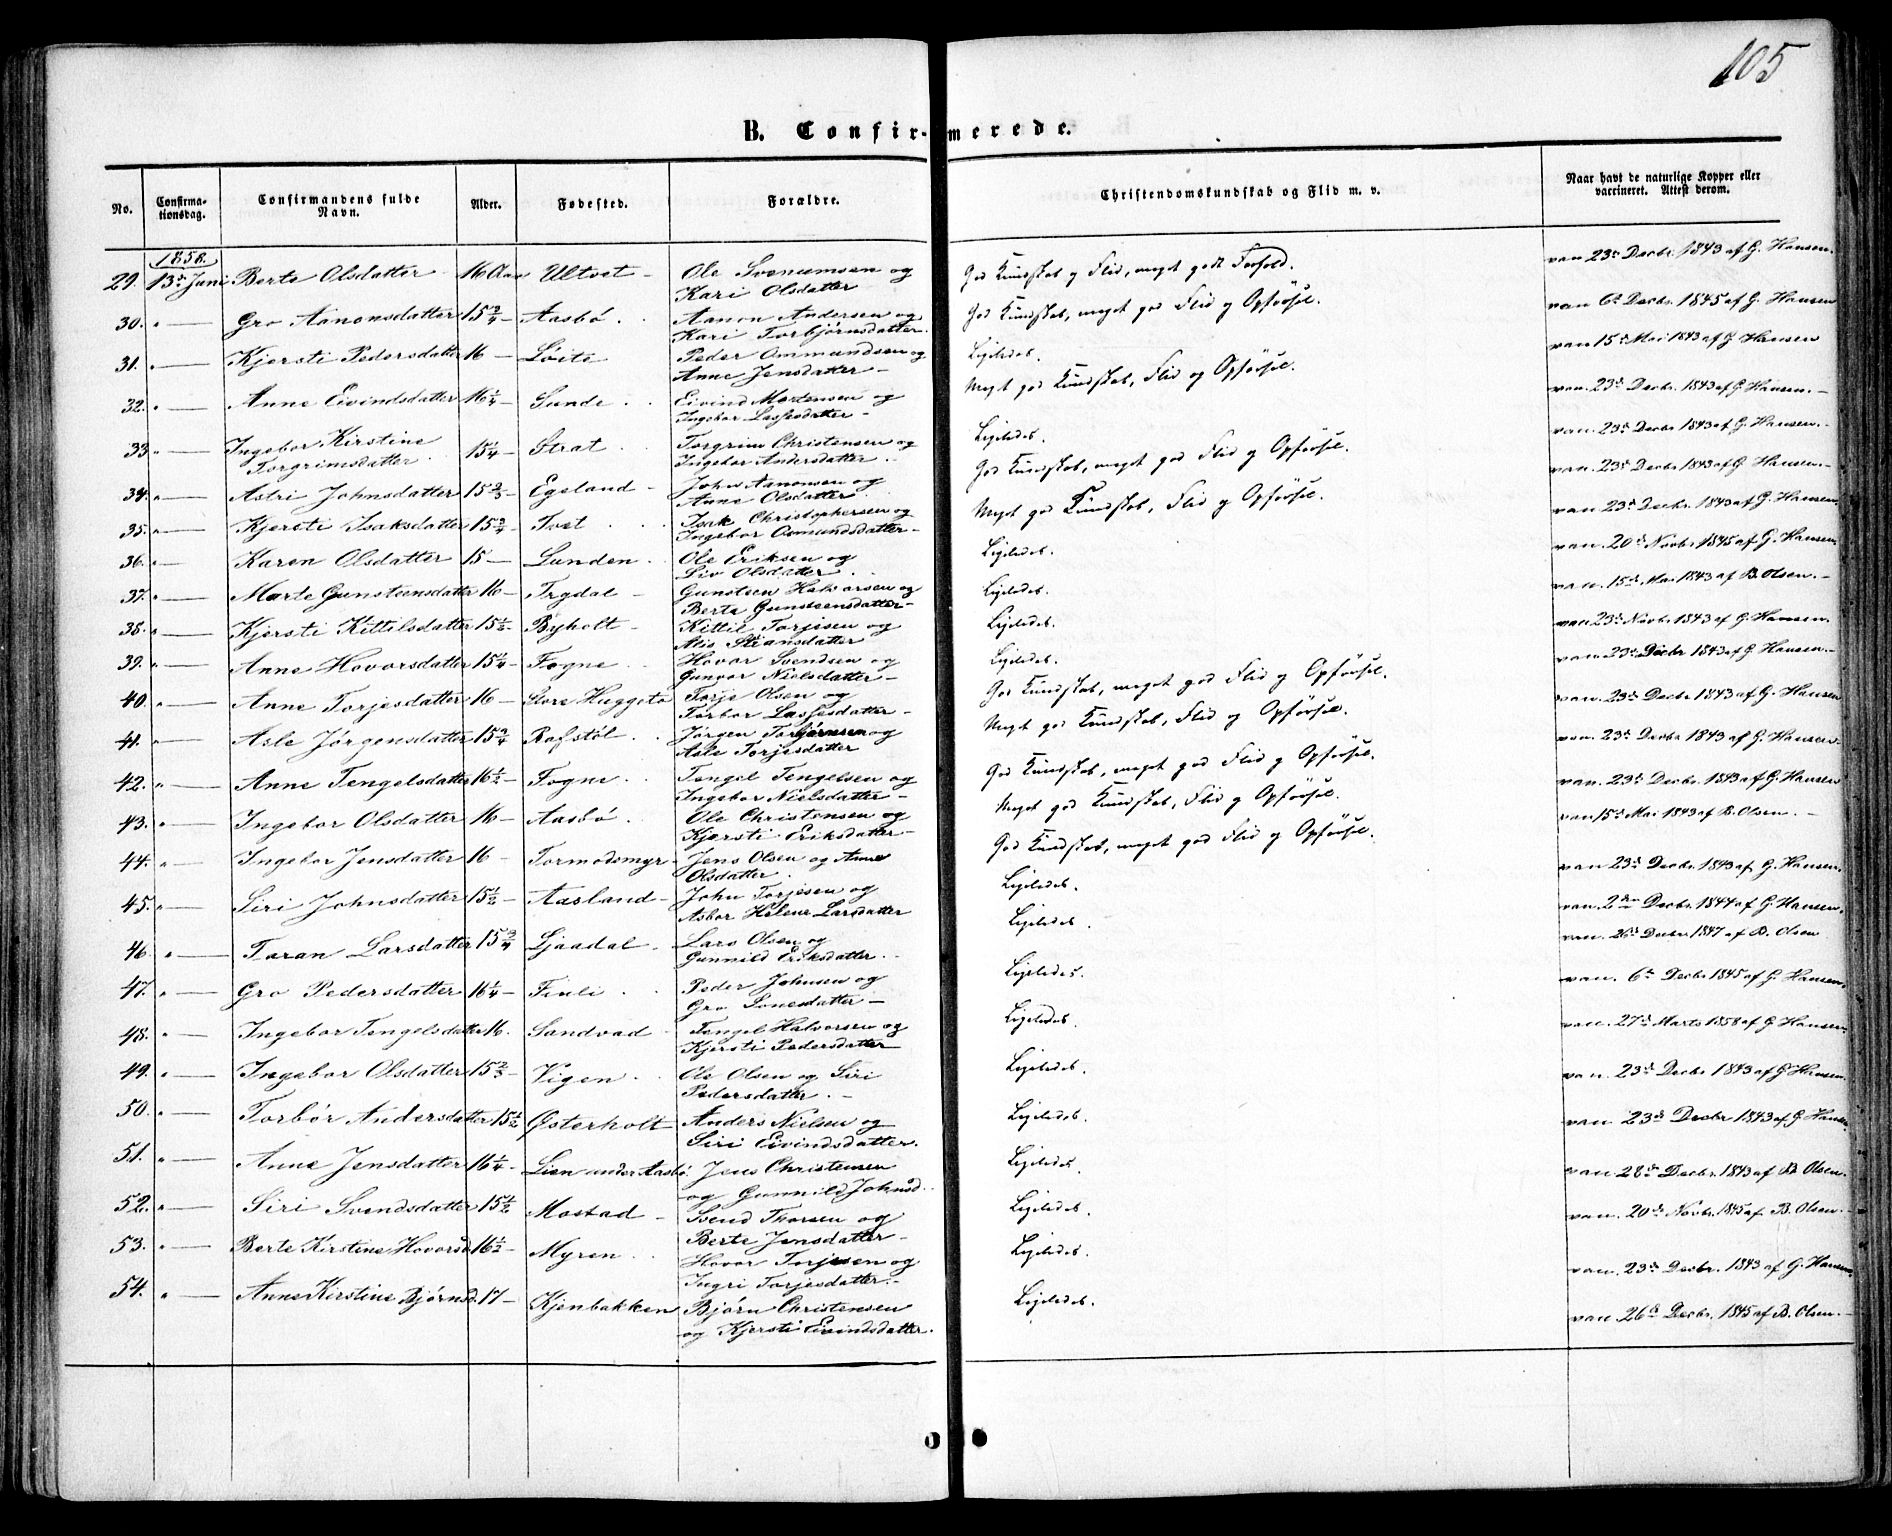 105
B. Confirmerede.
No.
Confirma-
tionsdag.
Confirmandens fulde
Navn.
Alder.
Fødested.
Forældre.
Christendomskundskab og Flid m. v.
Naar havt de naturlige Kopper eller
vaccineret. Attest derom.
1858.
29. 13de Juni Berte Olsdatter 16 Aar Ultvet - Ole Svenumsen og
Kari Olsdatter God Kundskab og Flid, meget godt Forhold. vac. 23de Decbr. 1843 af G. Hansen.
30. " — Gro Aanonsdatter 15 3/4 - Aasbö . Aanon Andersen og
Kari Torbjørnsdatter. God Kundskab, meget god Flid og Opførsel. vac. 6te Decbr. 1845 af G. Hansen
31. " — Kjersti Pedersdatter 16 - Löite Peder Ommundsen og
Anne Jensdatter - Ligeledes. vac. 15de Mai 1843 af G. Hansen
32. " — Anne Eivindsdatter 16 1/4 - Sunde . . Eivind Mortensen og
Ingebor Lassesdatter - Meget god Kundskab, Flid og Opførsel. vac. 23de Decbr. 1843 af G. Hansen. -
33 " — Ingebor Kirstine
Torgrimsdatter . 15 1/4 - Strat . Torgrim Christensen og
Ingebor Andersdatter . Ligeledes. vac. 23de Decbr 1843 af G. Hansen. -
34. " — Astri Johnsdatter 15 2/3 - Egeland - John Aanonsen og
Anne Olsdatter God Kundskab, meget god Flid og Opførsel. vac. 23de Decbr 1843 af G. Hansen. -
35. " — Kjersti Isaksdatter 15 3/4 - Tvet . . Isak Christophersen og
Ingebor Osmundsdatter - Meget god Kundskab, Flid og Opførsel. vac. 23de Decbr. 1843 af G. Hansen.
36. " — Karen Olsdatter 15 - Lunden . Ole Eriksen og
Liv Olsdatter . Ligeledes. vac. 20de Novbr 1845 af G. Hansen.
37. " — Marte Gunsteensdatter 16 - Trydal - Gunsteen Halvorsen og
Berte Gunsteensdatter - Ligeledes. vac. 15de Mai 1843 af B. Olsen. -
38. " — Kjersti Kittilsdatter 15 1/2 - Byholt - Kittil Torjesen og
Alis Steansdatter Ligeledes. vac. 23de Novbr 1843 af G. Hansen.
39. " — Anne Hovorsdatter 15 1/4 - Fogne . . Hovor Svendsen og
Gunvor Nielsdatter - Ligeledes. vac. 23de Decbr 1843 af G. Hansen. -
40. " — Anne Torjesdatter 16 - Store Huggeto Torje Olsen og
Torbor Lassesdatter - God Kundskab, meget god Flid og Opførsel. vac. 23de Decbr 1843 af G. Hansen
41. " — Asle Jörgensdatter 15 3/4 - Rafstöl . . Jörgen Torbjørnsen og
Asle Torjesdatter Meget god Kundskab, Flid og Opførsel. vac. 23de Decbr 1843 af G. Hansen.
42. " — Anne Tengelsdatter 16 1/2 - Fogne . . Tengel Tengelsen og
Ingebor Nielsdatter - God Kundskab, meget god Flid og Opførsel. vac. 23de Decbr. 1843 af G. Hansen
43. " — Ingebor Olsdatter 16 - Aasbö . Ole Christensen og
Kjersti Eriksdatter - Meget god Kundskab, Flid og Opførsel. vac. 15de Mai 1843 af B. Olsen. -
44. " — Ingebor Jensdatter 16 - Tormodsmyr - Jens Olsen og Anne
Olsdatter . God Kundskab, meget god Flid og Opførsel. vac. 23de Decbr. 1843 af G. Hansen.
45. " — Siri Johnsdatter 15 1/2 - Aasland - John Torjesen og
Asbor Helene Larsdatter Ligeledes. vac. 2den Decbr. 1844 af G. Hansen.
46. " — Taran Larsdatter 15 3/4 - Ljaadal - Lars Olsen og
Gunnild Eriksdatter. . Ligeledes. vac. 26de Decbr 1847 af B. Olsen
47. " — Gro Pedersdatter 16 1/4 - Finli . . Peder Johnsen og
Gro Sonesdatter - Ligeledes. vac. 6te Decbr 1845 af G. Hansen.
48. " — Ingebor Tengelsdatter 16. Sandvad - Tengel Halvorsen og
Kjersti Pedersdatter Ligeledes. vac. 27de Marts 1858 af G. Hansen.
49. " — Ingebor Olsdatter 15 2/3 - Vigen . . Ole Olsen og Siri
Pedersdatter . - Ligeledes. vac. 23de Decbr 1843 af G. Hansen.
50. " — Torbör Andersdatter 15 1/2 Østerholt Anders Nielsen og
Siri Eivindsdatter. Ligeledes. vac. 23de Decbr 1843 af G. Hansen
51. " — Anne Jensdatter 16 1/4 - Lien under Aasbö. Jens Christensen
og Gunnild Johnsd.. Ligeledes. vac. 28de Decbr. 1843 af B. Olsen.
52. " — Siri Svendsdatter 15 1/2 Mostad - Svend Thorsen og
Berte Jensdatter - Ligeledes. vac. 20de Novbr. 1845 af B. Olsen. -
53. " — Berte Kirstine Hovorsd. 16 1/2 - Myren . . Hovor Torjesen og
Ingri Torjesdatter. - Ligeledes. vac. 23de Decbr. 1843 af G. Hansen.
54. " — Anne Kirstine Bjørnsd. 17 - Kjenbakken Bjørn Christensen
og Kjersti Eivindsdatter. Ligeledes. vac. 26de Decbr. 1845 af B. Olsen. -